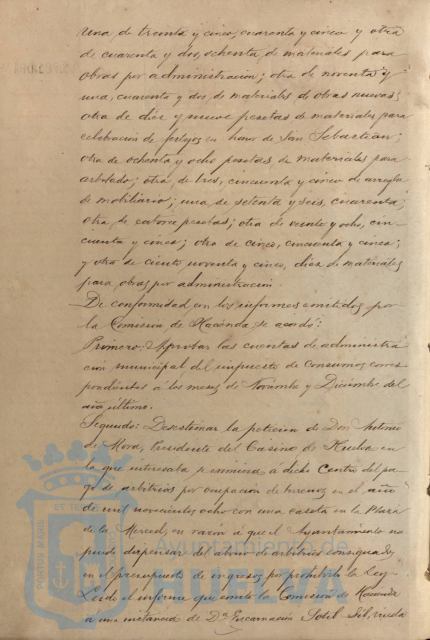 una de treinta y cinco, cuarenta y cinco y otra
de cuarenta y dos, ochenta, de materiales para
obras por administración; otra de noventa y
una, cuarenta y dos, de materiales de obras nuevas;
otra de diez y nueve pesetas de materiales para
celebración de festejos en honor de San Sebastian;
otra de ochenta y ocho pesetas de materiales para
arbolado; otra de tres, cincuenta y cinco de arreglo
de mobiliario; una de setenta y seis, cuarenta;
otra de catorce pesetas; otra de veinte y ocho, cin-
cuenta y cinco; otra de cinco, cincuenta y cinco;
y otra de ciento noventa y cinco, diez de materiales
para obras por administración.
De conformidad con los informes emitidos por
la Comisión de Hacienda se acordó:
Primero: Aprobar las cuentas de administra
ción municipal del impuesto de Consumos corres
pondientes á los meses de Noviembre y Diciembre del
año último.
Segundo: Desestimar la petición de Don Antonio
de Mora, Presidente del Casino de Huelva en
la que interesaba se eximiera á dicho Centro del pa
go de arbitrios por ocupación de terrenos en el año
de mil novecientos ocho con una caseta en la Plaza
de la Merced, en razón á que el Ayuntamiento no
puede dispensar del abono de arbitrios consignados
en el presupuesto de ingresos por prohibirlo la Ley.
Leido el informe que emite la Comisión de Hacienda
á una instancia de Dª Encarnación Gil, viuda
Ayuntamiento de
HUELVA
PORTUS MARIS
ET TE